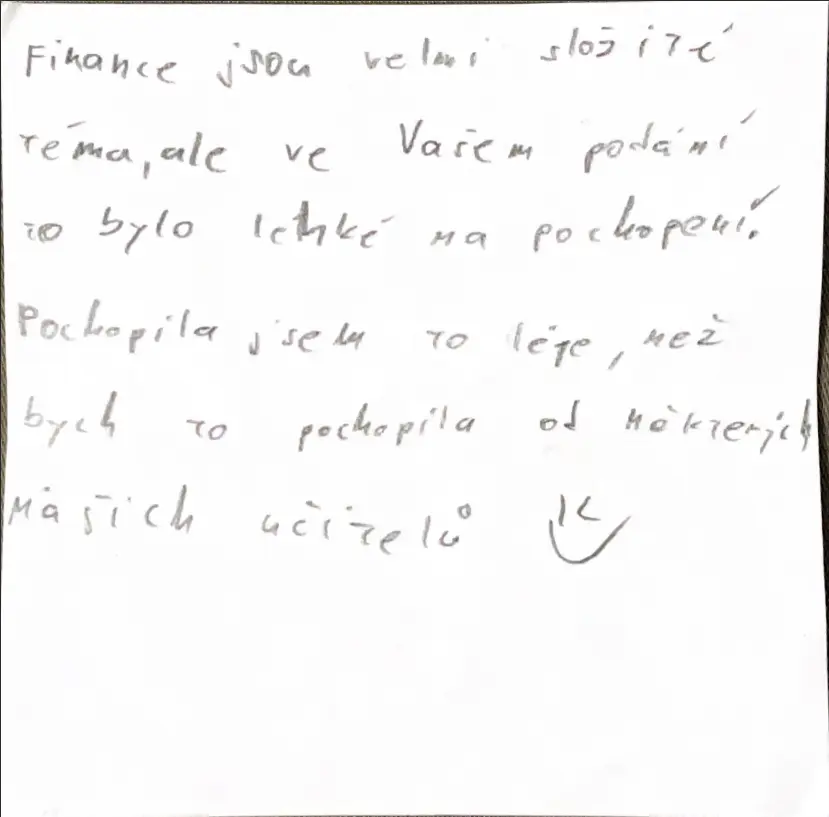 Finance jsou velmi složité
téma, ale ve Vašem podání
to bylo lehké na pochopení.
Pochopila jsem to lépe, než
bych to pochopila od některých
našich učitelů